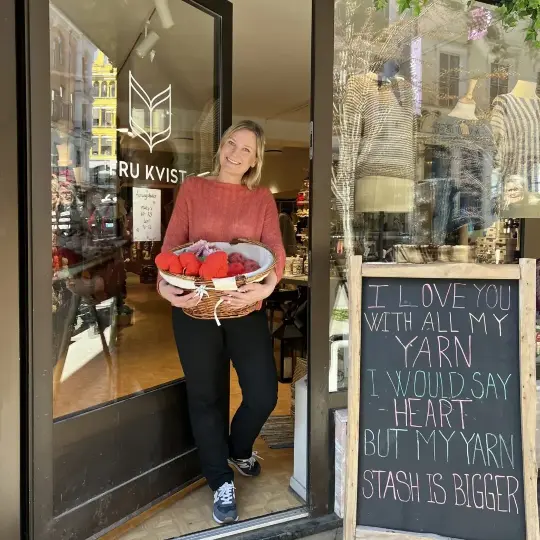 FRU KVIST
I LOVE YOU
WITH ALL MY
YARN
I WOULD SAY
- HEART -
BUT MY YARN
STASH IS BIGGER